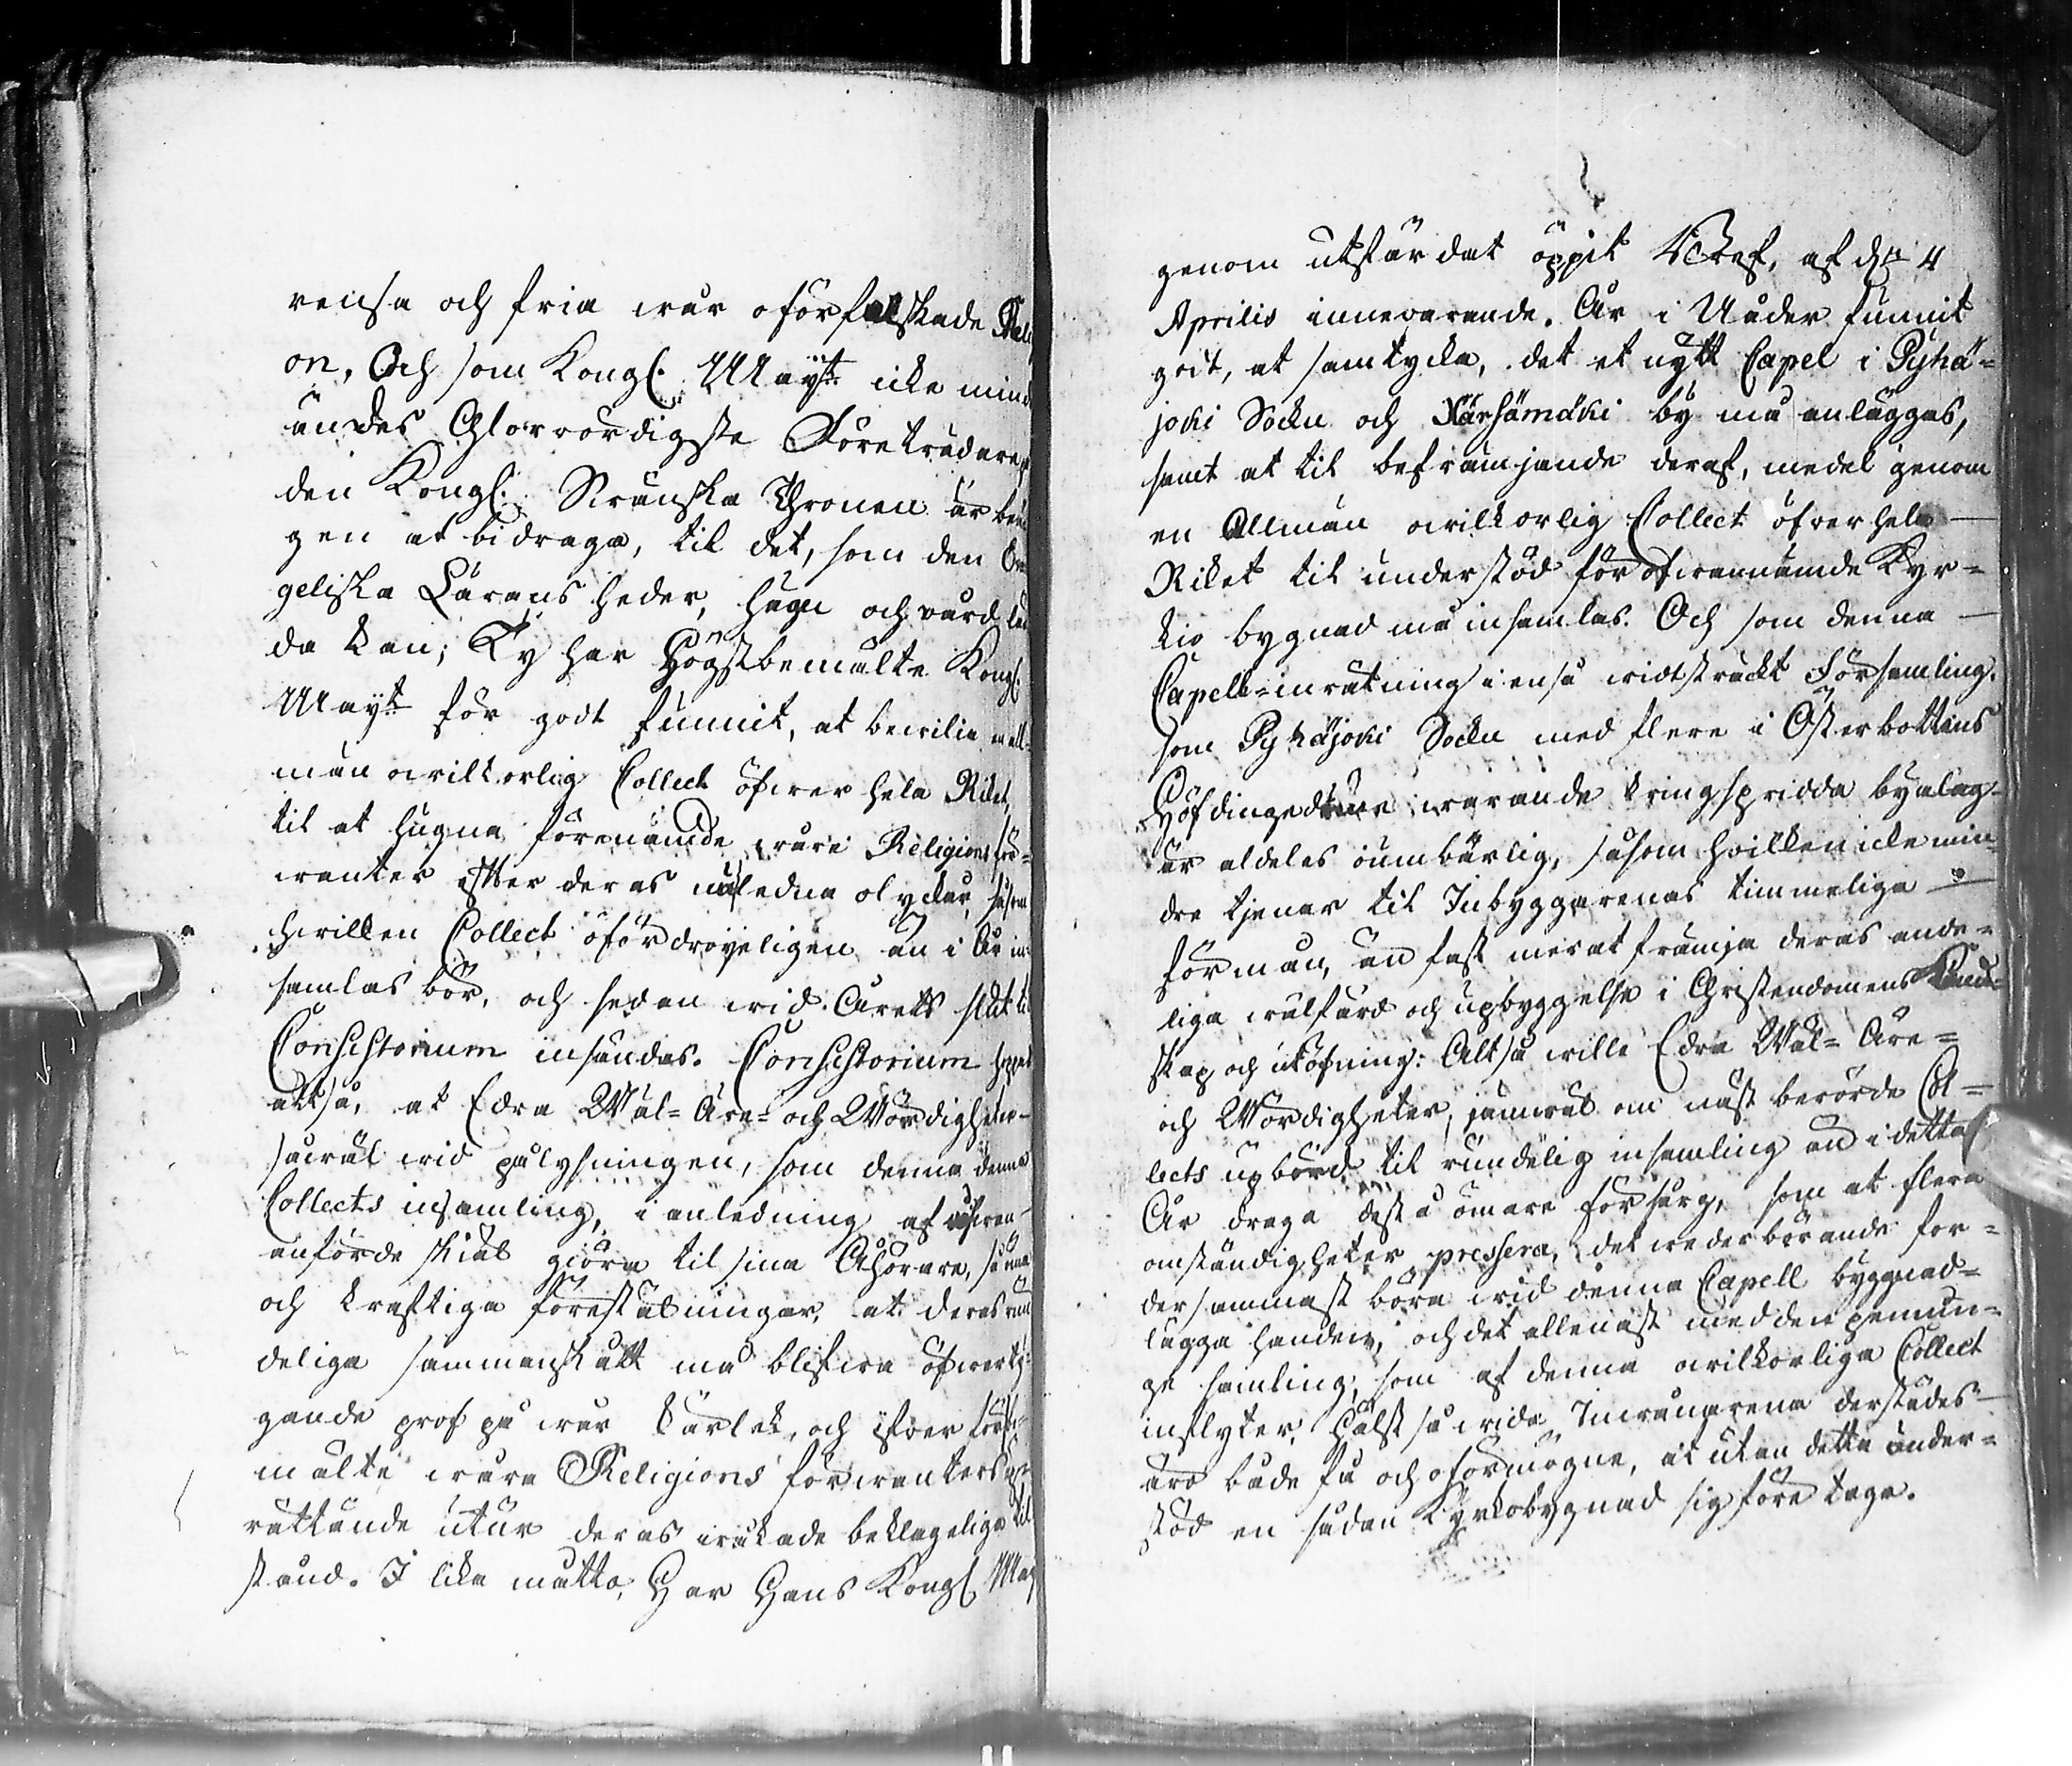 rensa och fria wår oförfalskade Reli
on, Och som Kongl. Mayt: icke mind
än des Glorvördigste Företrädare p
den Kongl. Swänska Thronen är benä
gen at bidraga, til det, som den Eva
geliska Lärans heder, hägn och värd län
da kan; Ty har Högstbemälte Kongl.
Mayt: för godt funnit, at bewilia en all-
män owilkorlig Collect öfwer hela Riket,
til at hugna förenämde wåre Religions för-
wanter efter deras utledna olyckor, såsom
hwilken Collect ofördröyeligen än i År in-
samlas bör, och sedan wid Årets slut til
Consistorium insändas. Consistorium hoppas
altså, at Edra Wäl-Äre- och Wördigheter
såwäl wid pålysningen, som denna denna
Collects insamling, i anledning af ofwan-
anförde skiäl giöra til sina Åhörare, så
och kraftiga föreställningar, at deras run
deliga sammanskått må blifwa öfwerty-
gande prof på wår Kärlek, och ifwer förbe-
mälte wåra Religions förwanters up-
rättande utur deras iråkade beklageliga til
stånd. I lika måtto, Har Hans Kongl May
genom utfärdat öppit Bref, af d: 4
Aprilis innevarande År i Nåder funnit
godt, at samtycka, det et nytt Capel i Pyhä-
joki Sockn och Kärsämäki by må anläggas,
samt at til befrämjande deraf, medel genom
en Allmän owilkorlig Collect öfwer hela
Riket til understöd för ofwannämde Kyr-
kio bygnad må insamlas. Och som denna
Capell-inrätning i en så widtsträckt Församling.
som Pyhäjoki Sockn med flere i Österbottens
Höfdingedöme warande kringspridda byalag
är aldeles oumbärlig, såsom hvilken icke min-
dre tjenar til Inbyggarenas timmeliga
förmån, än fast mer at främja deras ande-
liga wälfärd och upbyggelse i Christendomens Kund-
skap och utöfning: Altså wille Edra Wäl-Äre-
och Wördigheter, jämwäl om näst berörde Col-
lects upbörd til rundelig insamling än i detta
År draga dest ömare försorg, som at flera
omständigheter pressera, det wederbörande för-
dersammast böra wid denna Capell byggnad
lägga handen, och det allenast med den penin-
ge samling, som af denna owilkorliga Collect
inflyter, Hälst så wida Inwånarena derstädes
äro både få och oförmögne, at utan detta under-
stöd en sådan Kyrkobygnad sig företaga.